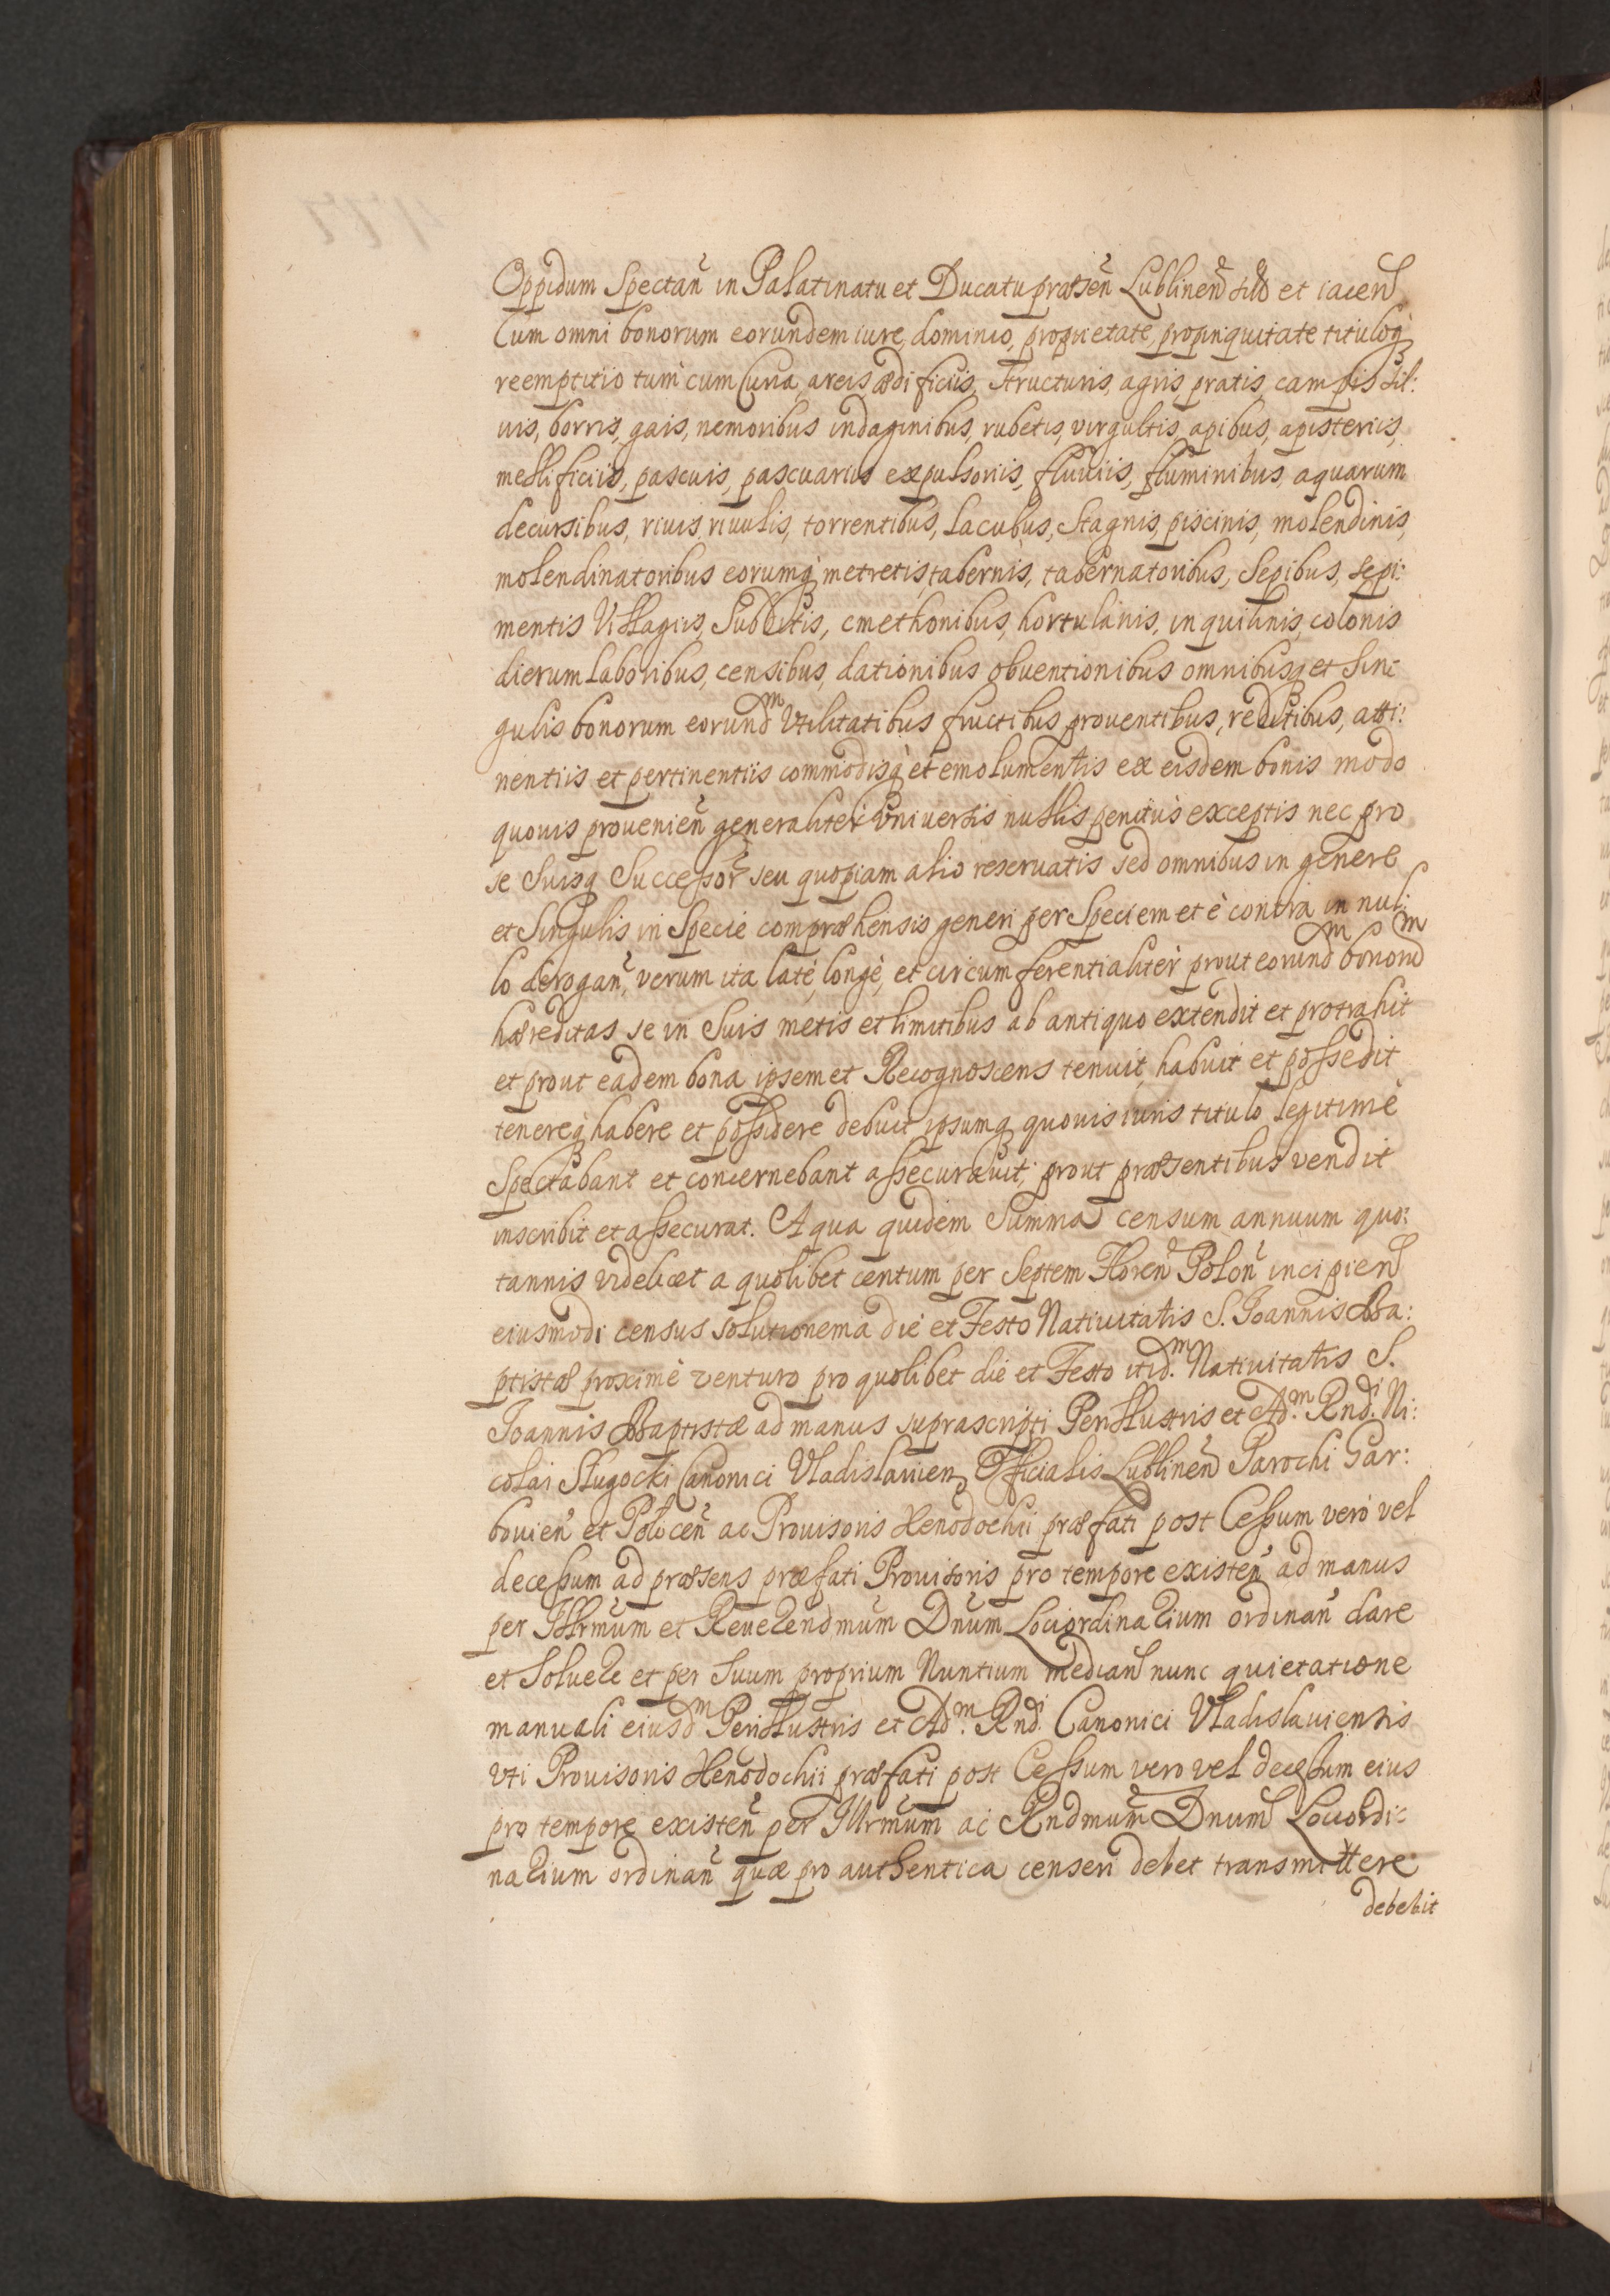 Oppidum Spectañ in Palatinatu et Ducatu præsẽn Lublineñ sitis et iaceñ
Cum omni bonorum eorundem iure, dominio, proprietate, propinquitate tituloq̃
reemptitio tum cum Curia, areis ædificiis, structuris, agris, pratis, campis sil:
uis, borris, gais, nemoribus indaginibus, rubetis, virgultis, apibus, apisteriis,
mellificiis, pascuis, pascuariis expulsoriis, fluuiis, fluminibus, aquarum
decursibus, riuis, riuulis, torrentibus, lacubus, Stagnis, piscinis, molendinis,
molendinatoribus eorumq̃ metretis, tabernis, tabernatoribus, Sepibus, sepi:
mentis Villagiis, Subditis, cmethonibus, hortulanis, inquilinis, colonis
dierum laboribus, censibus, dationibus obuentionibus omnibusq̃ et Sin:
gulis bonorum eorundm Vtilitatibus fructibus, prouentibus, reditibus, atti:
nentiis et pertinentiis commodisq̃ et emolumentis ex eisdem bonis modo
quouis prouenieñ generaliter Vniuersis nullis penitus exceptis nec pro
se Suisq̃ Successor̃ seu quopiam alio reseruatis sed omnibus in genere
et Singulis in Specie compræhensis generi per Speciem et è contra in nul:
lo derogañ, verum ita latè, longè, et circumferentialiter prout eorundm bonorum
hæreditas se in Suis metis et limitibus ab antiquo extendit et protrahit
et prout eadem bona ipsemet Recognoscens tenuit, habuit et possedit
tenereq̃ habere et possidere debuit ipsumq̃ quouis iuris titulo legitimè
Spectabant et concernebant assecurauit; prout præsentibus vendit
inscribit et assecurat. A qua quidem Summa censum annuum quo:
tannis videlicet a quolibet centum per Septem Floreñ Poloñ incipieñ
eiusmodi census solutionem a die et Festo Natiuitatis S. Joannis Ba:
ptistæ proximè venturo pro quolibet die et Festo itid.m Natiuitatis S.
Joannis Baptistæ ad manus suprascripti Perillustris et Ad.m Rnd.i Ni:
colai Sługocki Canonici Vladislauieñ, Officialis Lublineñ Parochi Gar:
bouieñ et Poloceñ ac Prouisoris Xenodochii præfati post Cessum verò vel
decessum ad præsens præfati Prouisoris pro tempore existeñ ad manus
per Illrmũm et Reuerendmũm Dnũm Lociordinarium ordinañ dare
et Soluere et per Suum proprium Nuntium mediañ nunc quietatione
manuali eiusdm Perillustris et Ad.m Rnd.i Canonici Vladislauiensis
vti Prouisoris Xenodochii præfati post Cessum vero vel decessum eius
pro tempore existeñ per Illrmũm ac Rndmũm Dnum Lociordi:
narium ordinañ quæ pro authentica censeri debet transmittere
debebit